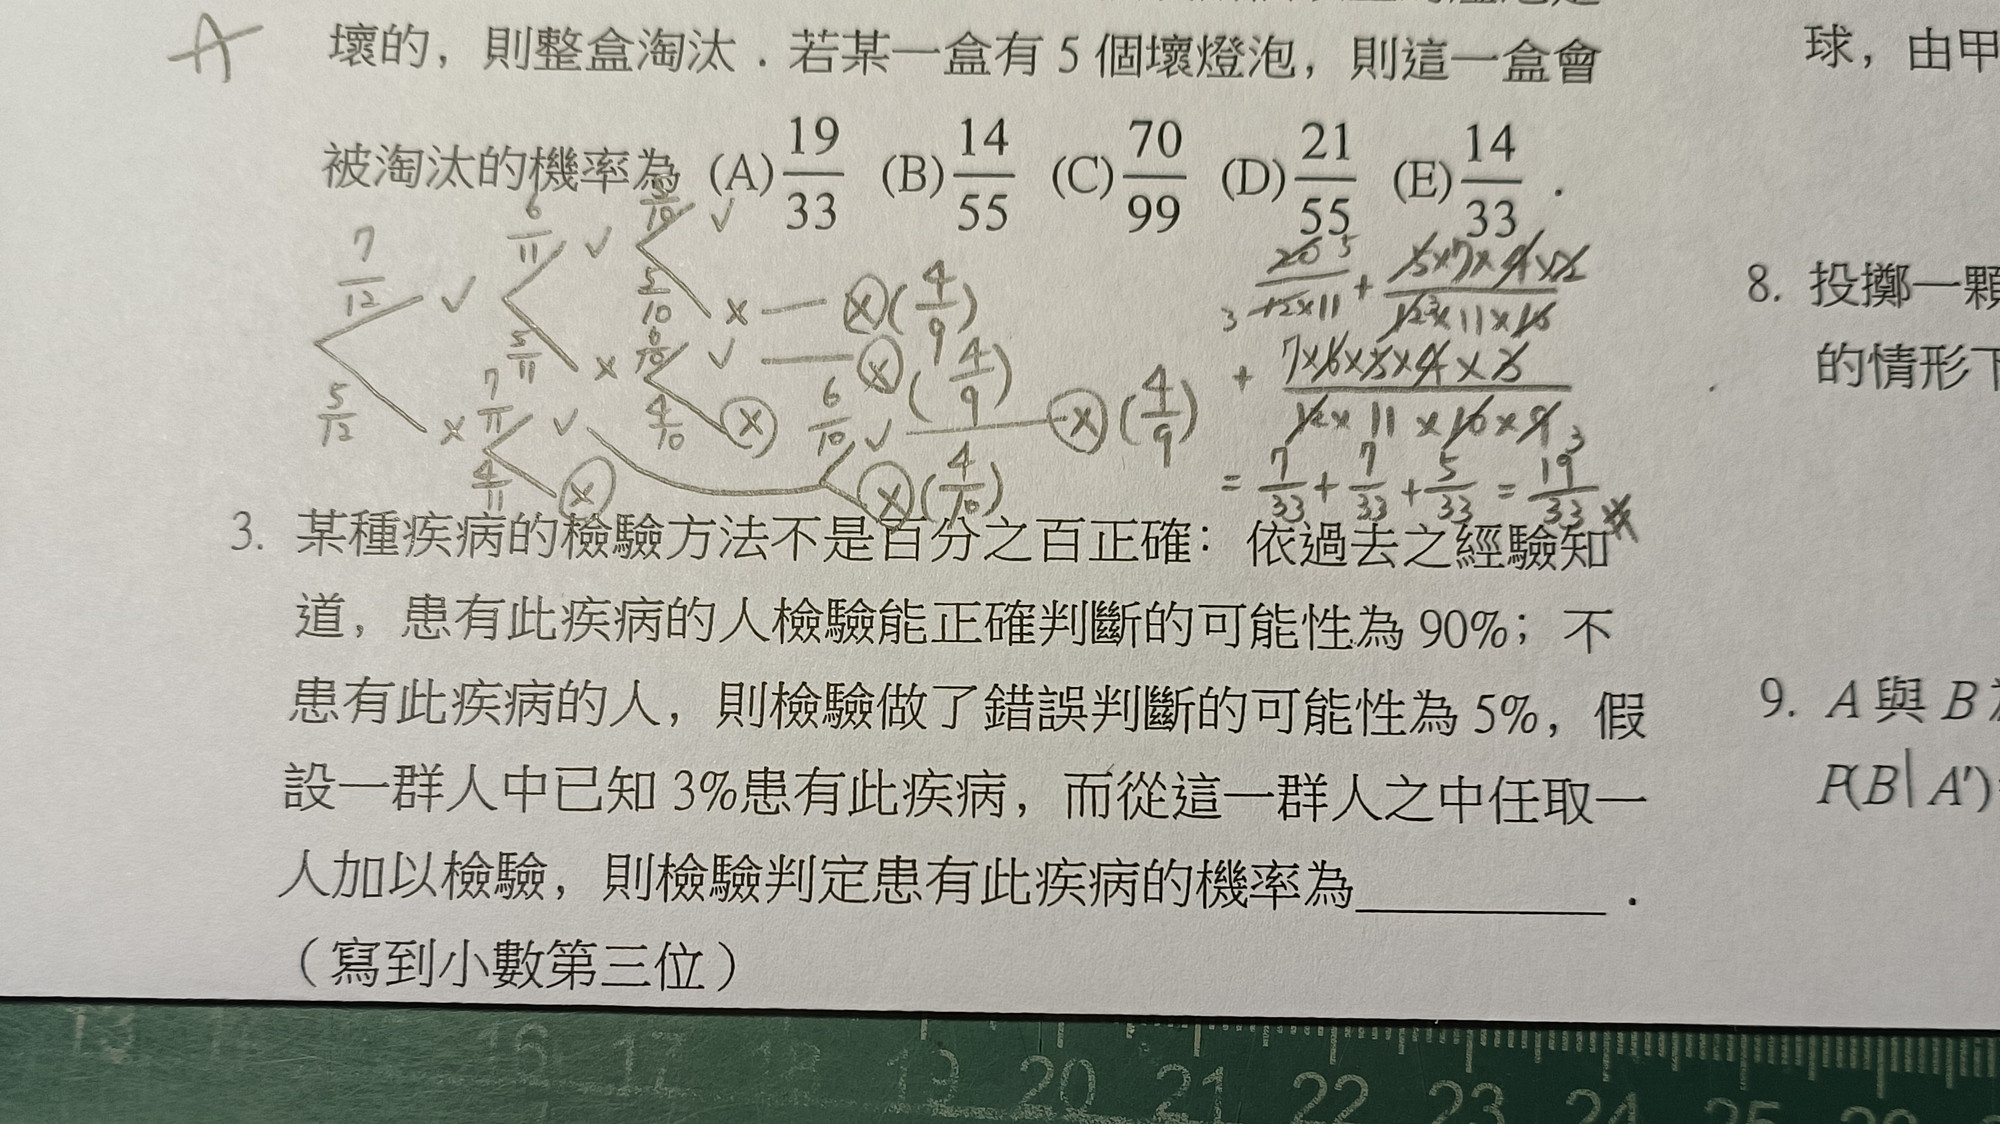 A
壞的，則整盒淘汰．若某一盒有 5 個壞燈泡，則這一盒會
被淘汰的機率為 (A) 19/33 (B) 14/55 (C) 70/99 (D) 21/55 (E) 14/33 ．
7/12 ✓ 6/11 ✓ ✓
5/10 × — ⓧ (4/9)
5/11 × 6/10 ✓ — ⓧ (4/9)
4/10 ⓧ
5/12 × 7/11 ✓ 6/10 ✓ — ⓧ (4/9)
4/11 ⓧ ⓧ (4/10)
20/12×11 + 5×7×4×2/12×11×10
+ 7×6×5×4×3/12×11×10×9
= 7/33 + 7/33 + 5/33 = 19/33
3. 某種疾病的檢驗方法不是百分之百正確：依過去之經驗知
道，患有此疾病的人檢驗能正確判斷的可能性為 90%；不
患有此疾病的人，則檢驗做了錯誤判斷的可能性為 5%，假
設一群人中已知 3%患有此疾病，而從這一群人之中任取一
人加以檢驗，則檢驗判定患有此疾病的機率為＿＿＿＿．
（寫到小數第三位）
球，由甲
8. 投擲一顆
的情形下
9. A 與 B
P(B| A′)
16 17 18 19 20 21 22 23 24 25 26